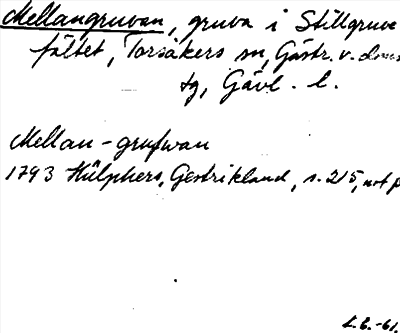 Mellangruvan, gruva i Stillgruve
fältet, Torsåkers sn, Gästr. v. doms
tg, Gävl. l.
Mellan-grufwan
1793 Hülphers, Gestrikland, s. 215, not p
L.E.-61.